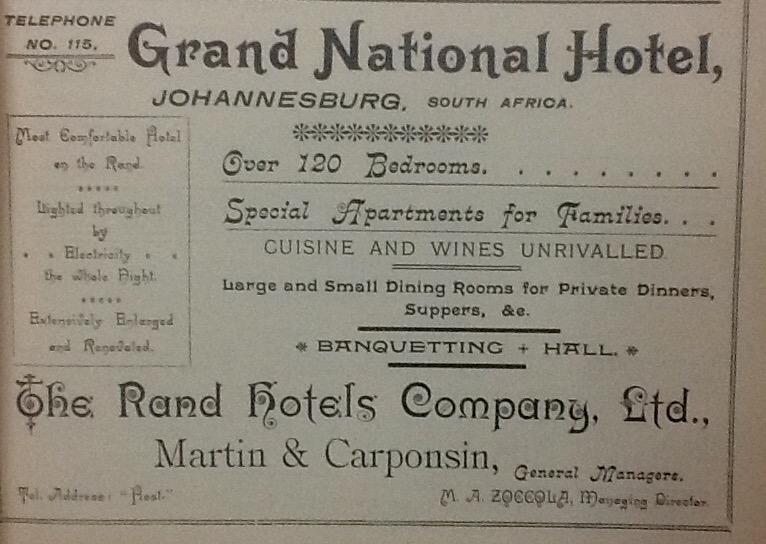 TELEPHONE
NO. 115.
Grand National Hotel,
JOHANNESBURG, SOUTH AFRICA.
Most Comfortable Hotel
on the Rand.
Lighted throughout
by
Electricity
the whole Night.
Extensively Enlarged
and Renovated.
Over 120 Bedrooms. . . . . . . . .
Special Apartments for Families. . .
CUISINE AND WINES UNRIVALLED
Large and Small Dining Rooms for Private Dinners,
Suppers, &c.
BANQUETTING + HALL.
The Rand Hotels Company, Ltd.,
Martin & Carponsin, General Managers.
Tel. Address: "Host."
M. A. ZOCCOLA, Managing Director.